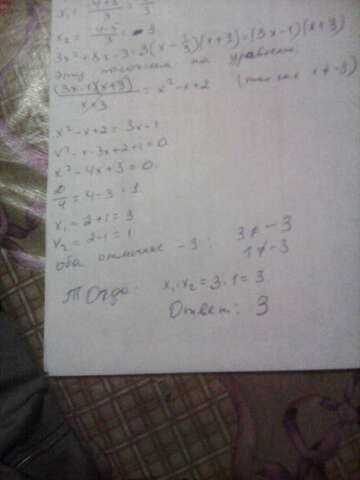 x₁ = (-4+5)/3 = 1/3
x₂ = (-4-5)/3 = -3
3x²+8x-3=3(x-1/3)(x+3)=(3x-1)(x+3)
на уравнение
(3x-1)(x+3)/(x+3) = x²-x+2 (так как x≠-3)
x²-x+2=3x-1
x²-x-3x+2+1=0
x²-4x+3=0
D/4=4-3=1
x₁=2+1=3
x₂=2-1=1
оба отличные -3: 3≠-3
1≠-3
Тогда: x₁·x₂=3·1=3
Ответ: 3